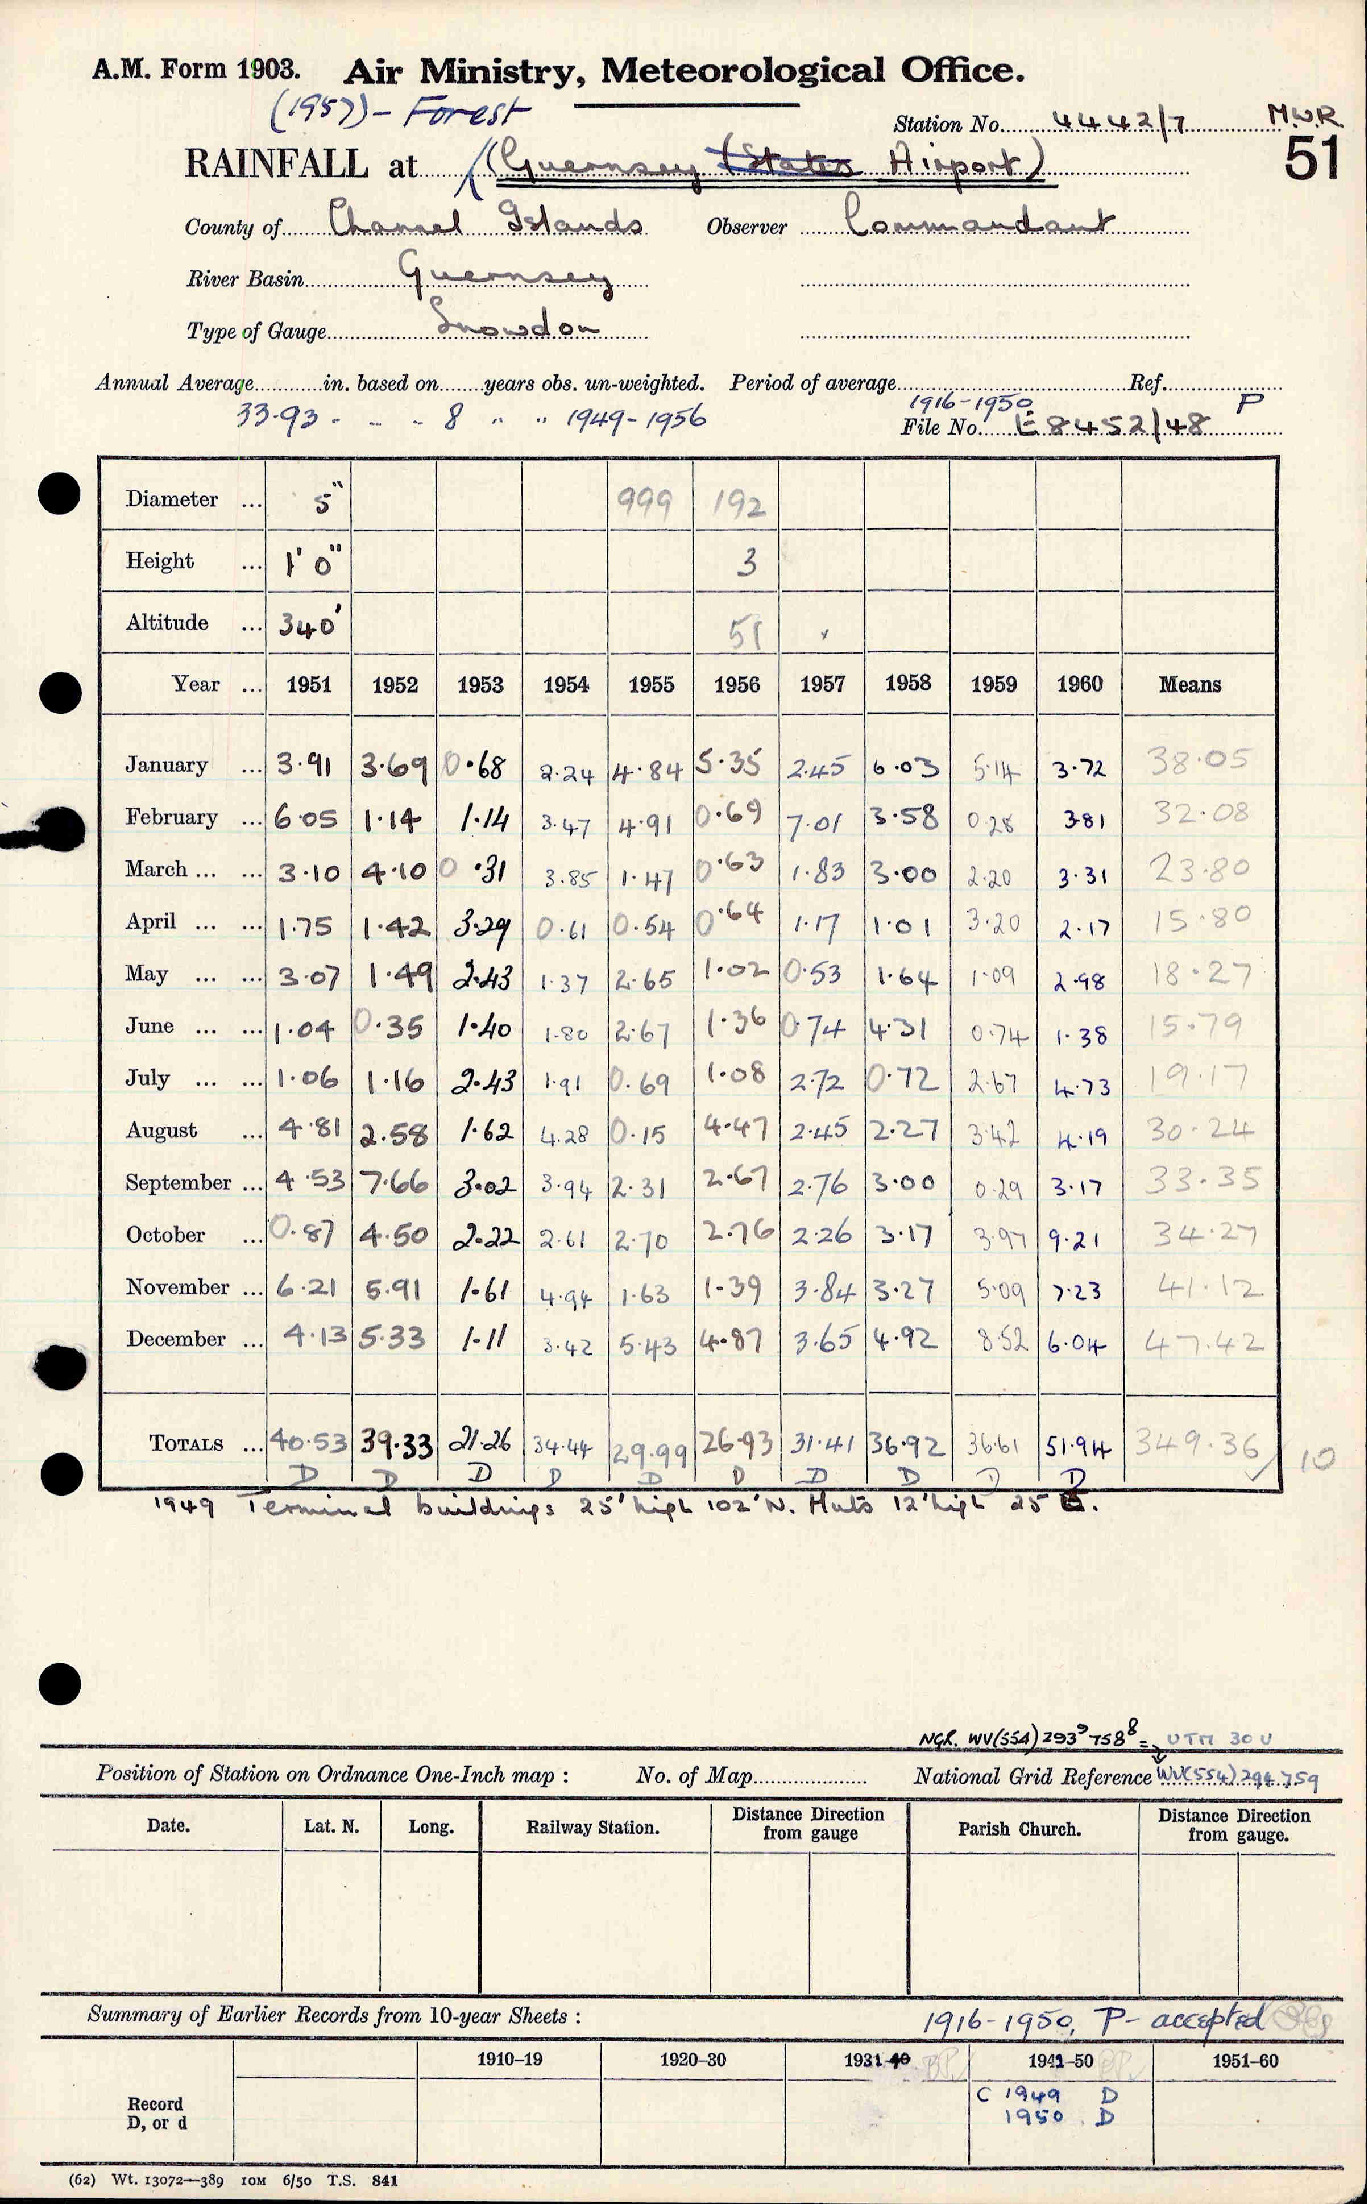 A.M. Form 1903. Air Ministry, Meteorological Office.
(1957) - Forest
Station No. 4442/7 M.W.R
51
RAINFALL at (Guernsey (States Airport)
County of Channel Islands Observer Commandant
River Basin Guernsey
Type of Gauge Snowdon
Annual Average in. based on years obs. un-weighted. Period of average Ref.
33.93 - - - 8 " " 1949-1956 1916-1950 P
File No. E8452/48
Diameter ... 5" 999 192
Height ... 1' 0" 3
Altitude ... 340' 51
Year ... 1951 1952 1953 1954 1955 1956 1957 1958 1959 1960 Means
January ... 3.91 3.69 0.68 2.24 4.84 5.35 2.45 6.03 5.14 3.72 38.05
February ... 6.05 1.14 1.14 3.47 4.91 0.69 7.01 3.58 0.28 3.81 32.08
March ... ... 3.10 4.10 0.31 3.85 1.47 0.63 1.83 3.00 2.20 3.31 23.80
April ... ... 1.75 1.42 3.29 0.61 0.54 0.64 1.17 1.01 3.20 2.17 15.80
May ... ... 3.07 1.49 2.43 1.37 2.65 1.02 0.53 1.64 1.09 2.98 18.27
June ... ... 1.04 0.35 1.40 1.80 2.67 1.36 0.74 4.31 0.74 1.38 15.79
July ... ... 1.06 1.16 2.43 1.91 0.69 1.08 2.72 0.72 2.67 4.73 19.17
August ... 4.81 2.58 1.62 4.28 0.15 4.47 2.45 2.27 3.42 4.19 30.24
September ... 4.53 7.66 3.02 3.94 2.31 2.67 2.76 3.00 0.29 3.17 33.35
October ... 0.87 4.50 2.22 2.61 2.70 2.76 2.26 3.17 3.97 9.21 34.27
November ... 6.21 5.91 1.61 4.94 1.63 1.39 3.84 3.27 5.09 7.23 41.12
December ... 4.13 5.33 1.11 3.42 5.43 4.87 3.65 4.92 8.52 6.04 47.42
TOTALS ... 40.53 39.33 21.26 34.44 29.99 26.93 31.41 36.92 36.61 51.94 349.36 / 10
D D D D D D D D D D
1949 Terminal buildings 25' high 102' N. Huts 12' high 25 E.
NGR. WV(554) 293⁹ 758⁸ = UTM 30U
Position of Station on Ordnance One-Inch map : No. of Map National Grid Reference WV(554) 294.759
Date. Lat. N. Long. Railway Station. Distance Direction from gauge Parish Church. Distance Direction from gauge.
Summary of Earlier Records from 10-year Sheets : 1916-1950, P- accepted
1910–19 1920–30 1931-40 1941–50 1951–60
Record D, or d
C 1949 D
1950 D
(62) Wt. 13072—389 10M 6/50 T.S. 841